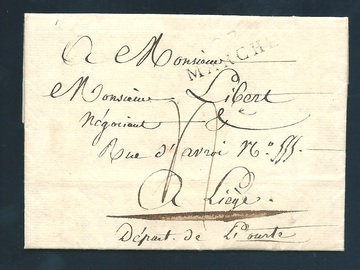 A Monsieur
MARCHE
Monsieur Libert
Négociant &
Rue d'avroi N.o 555.
A Liège.
Départ. de L'Ourte